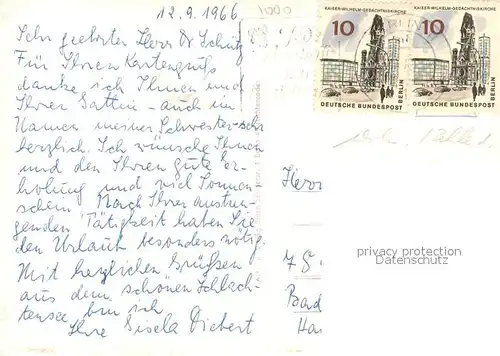 12.9.1966
Sehr geehrter Herr Dr Schütz
Für Ihren Kartengruß
danke ich Ihnen und
Ihrer Gattin – auch im
Namen meiner Schwester – sehr
herzlich. Ich wünsche Ihnen
und den Ihren gute Er-
holung und viel Sonnen-
schein. Nach Ihrer anstren-
genden Tätigkeit haben Sie
den Urlaub besonders nötig.
Mit herzlichen Grüßen
aus dem schönen Schlach-
tensee bin ich
Ihre Gisela Dickert
1000
KAISER-WILHELM-GEDÄCHTNISKIRCHE
10
DEUTSCHE BUNDESPOST
BERLIN
KAISER-WILHELM-GEDÄCHTNISKIRCHE
10
DEUTSCHE BUNDESPOST
BERLIN
Herr
75
Bad
Ha
privacy protection
Datenschutz